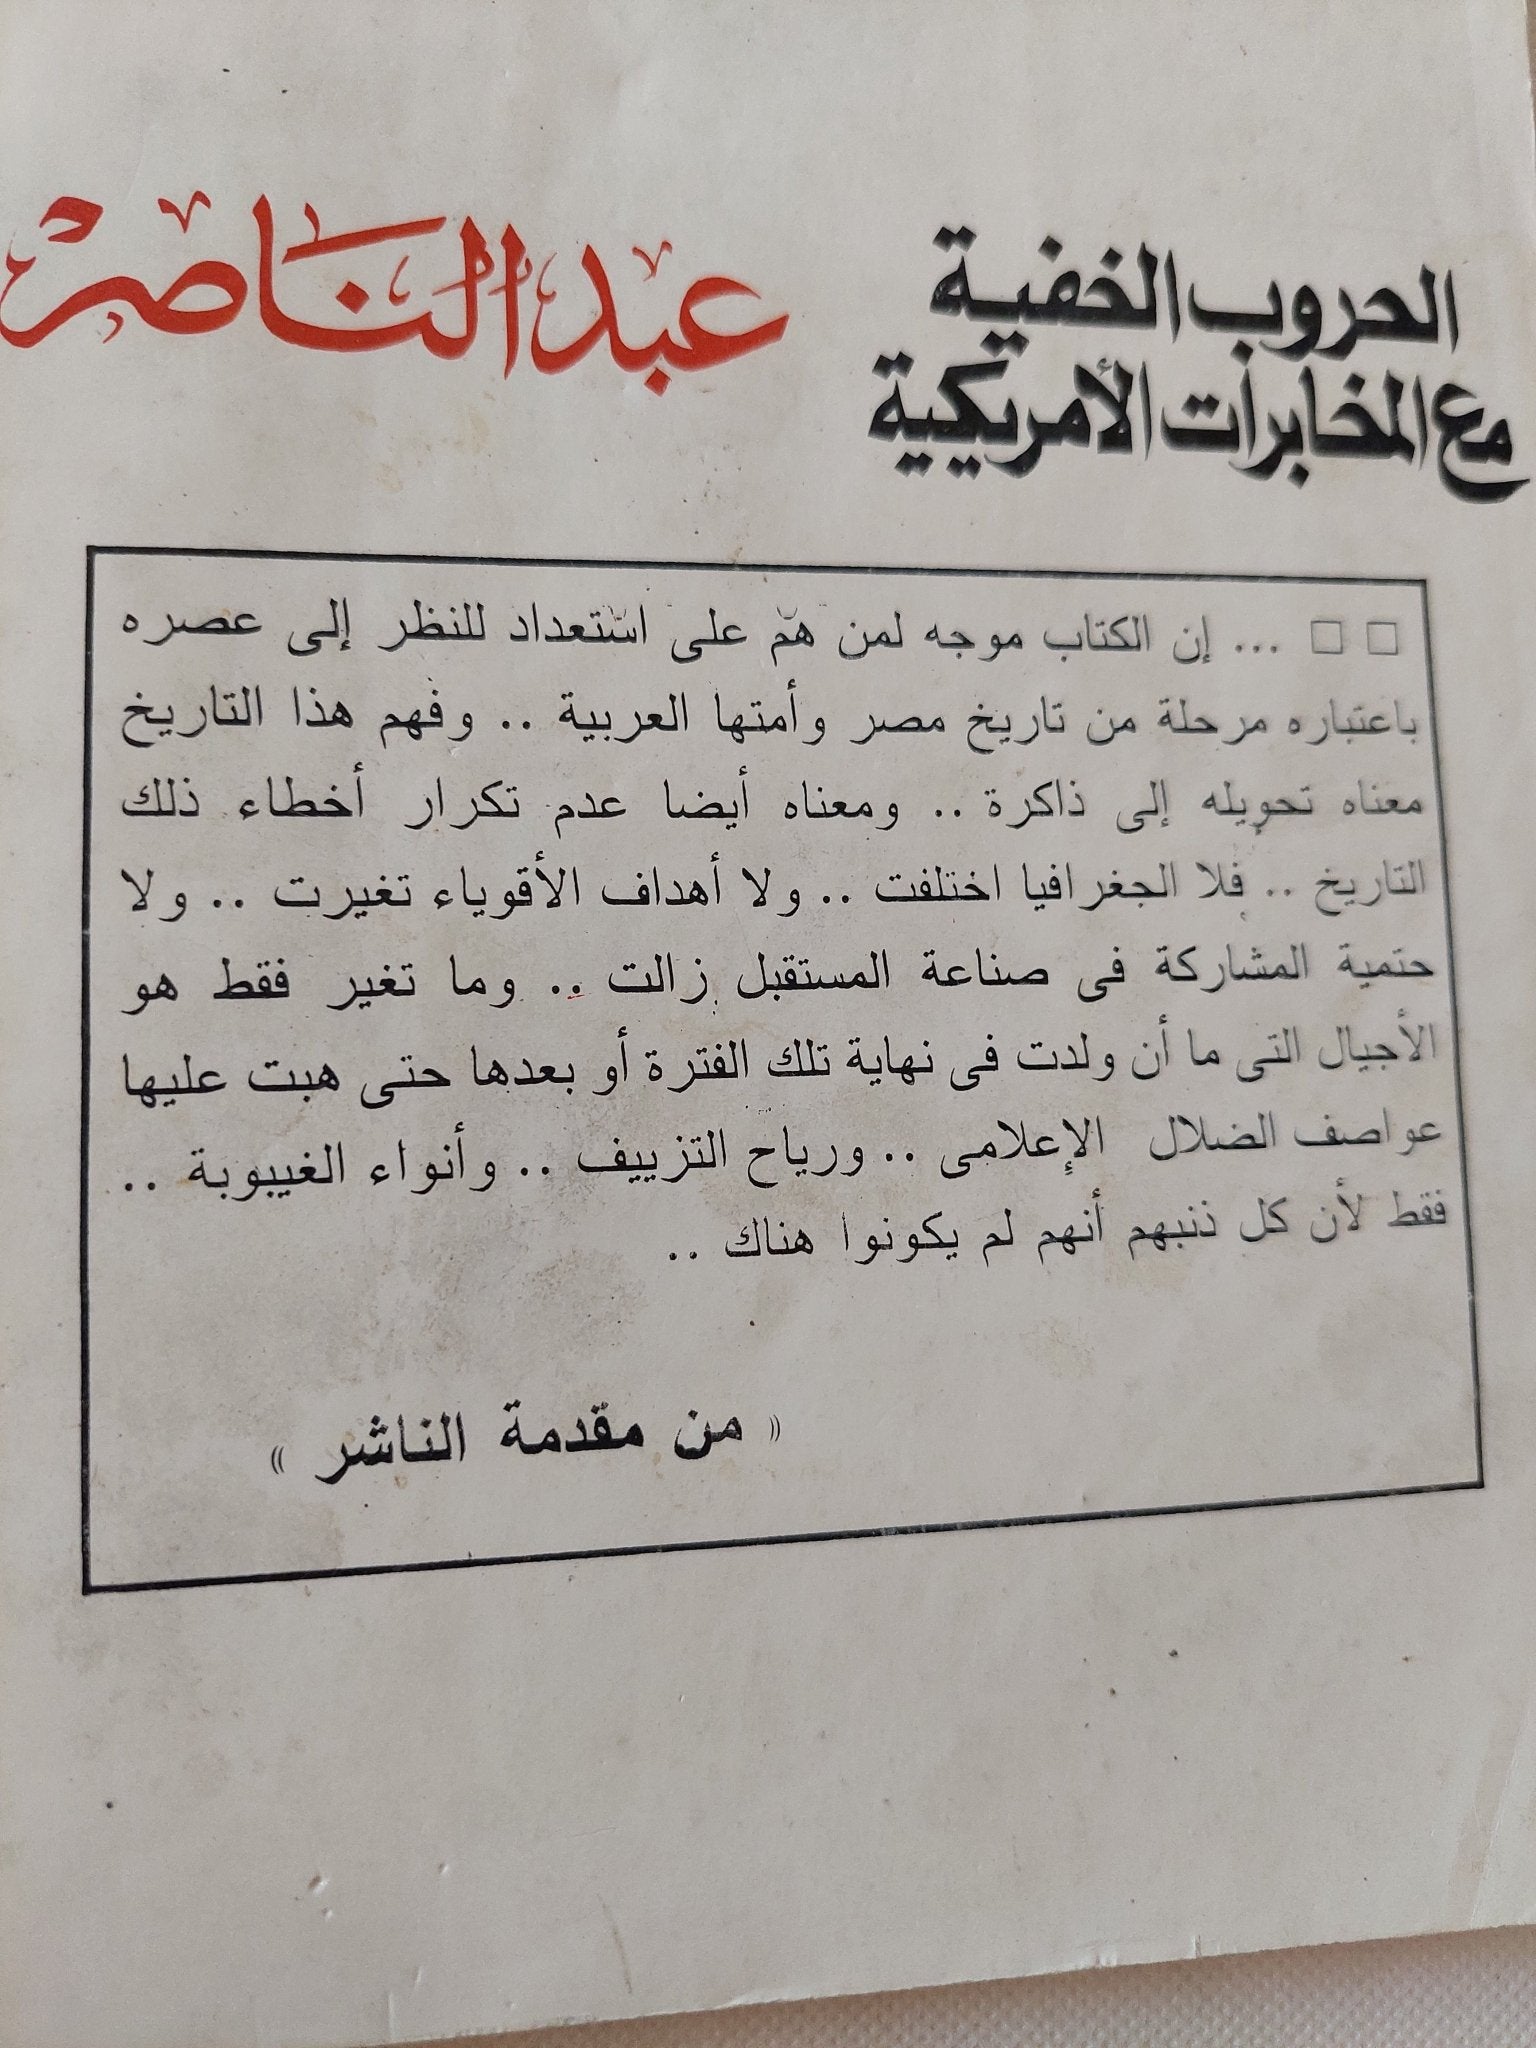 عبد الناصر
الحروب الخفية
مع المخابرات الأمريكية
□ □ ... إن الكتاب موجه لمن هم على استعداد للنظر إلى عصره
باعتباره مرحلة من تاريخ مصر وأمتها العربية .. وفهم هذا التاريخ
معناه تحويله إلى ذاكرة .. ومعناه أيضا عدم تكرار أخطاء ذلك
التاريخ .. فلا الجغرافيا اختلفت .. ولا أهداف الأقوياء تغيرت .. ولا
حتمية المشاركة فى صناعة المستقبل زالت .. وما تغير فقط هو
الأجيال التى ما أن ولدت فى نهاية تلك الفترة أو بعدها حتى هبت عليها
عواصف الضلال الإعلامى .. ورياح التزييف .. وأنواء الغيبوبة ..
فقط لأن كل ذنبهم أنهم لم يكونوا هناك ..
« من مقدمة الناشر »